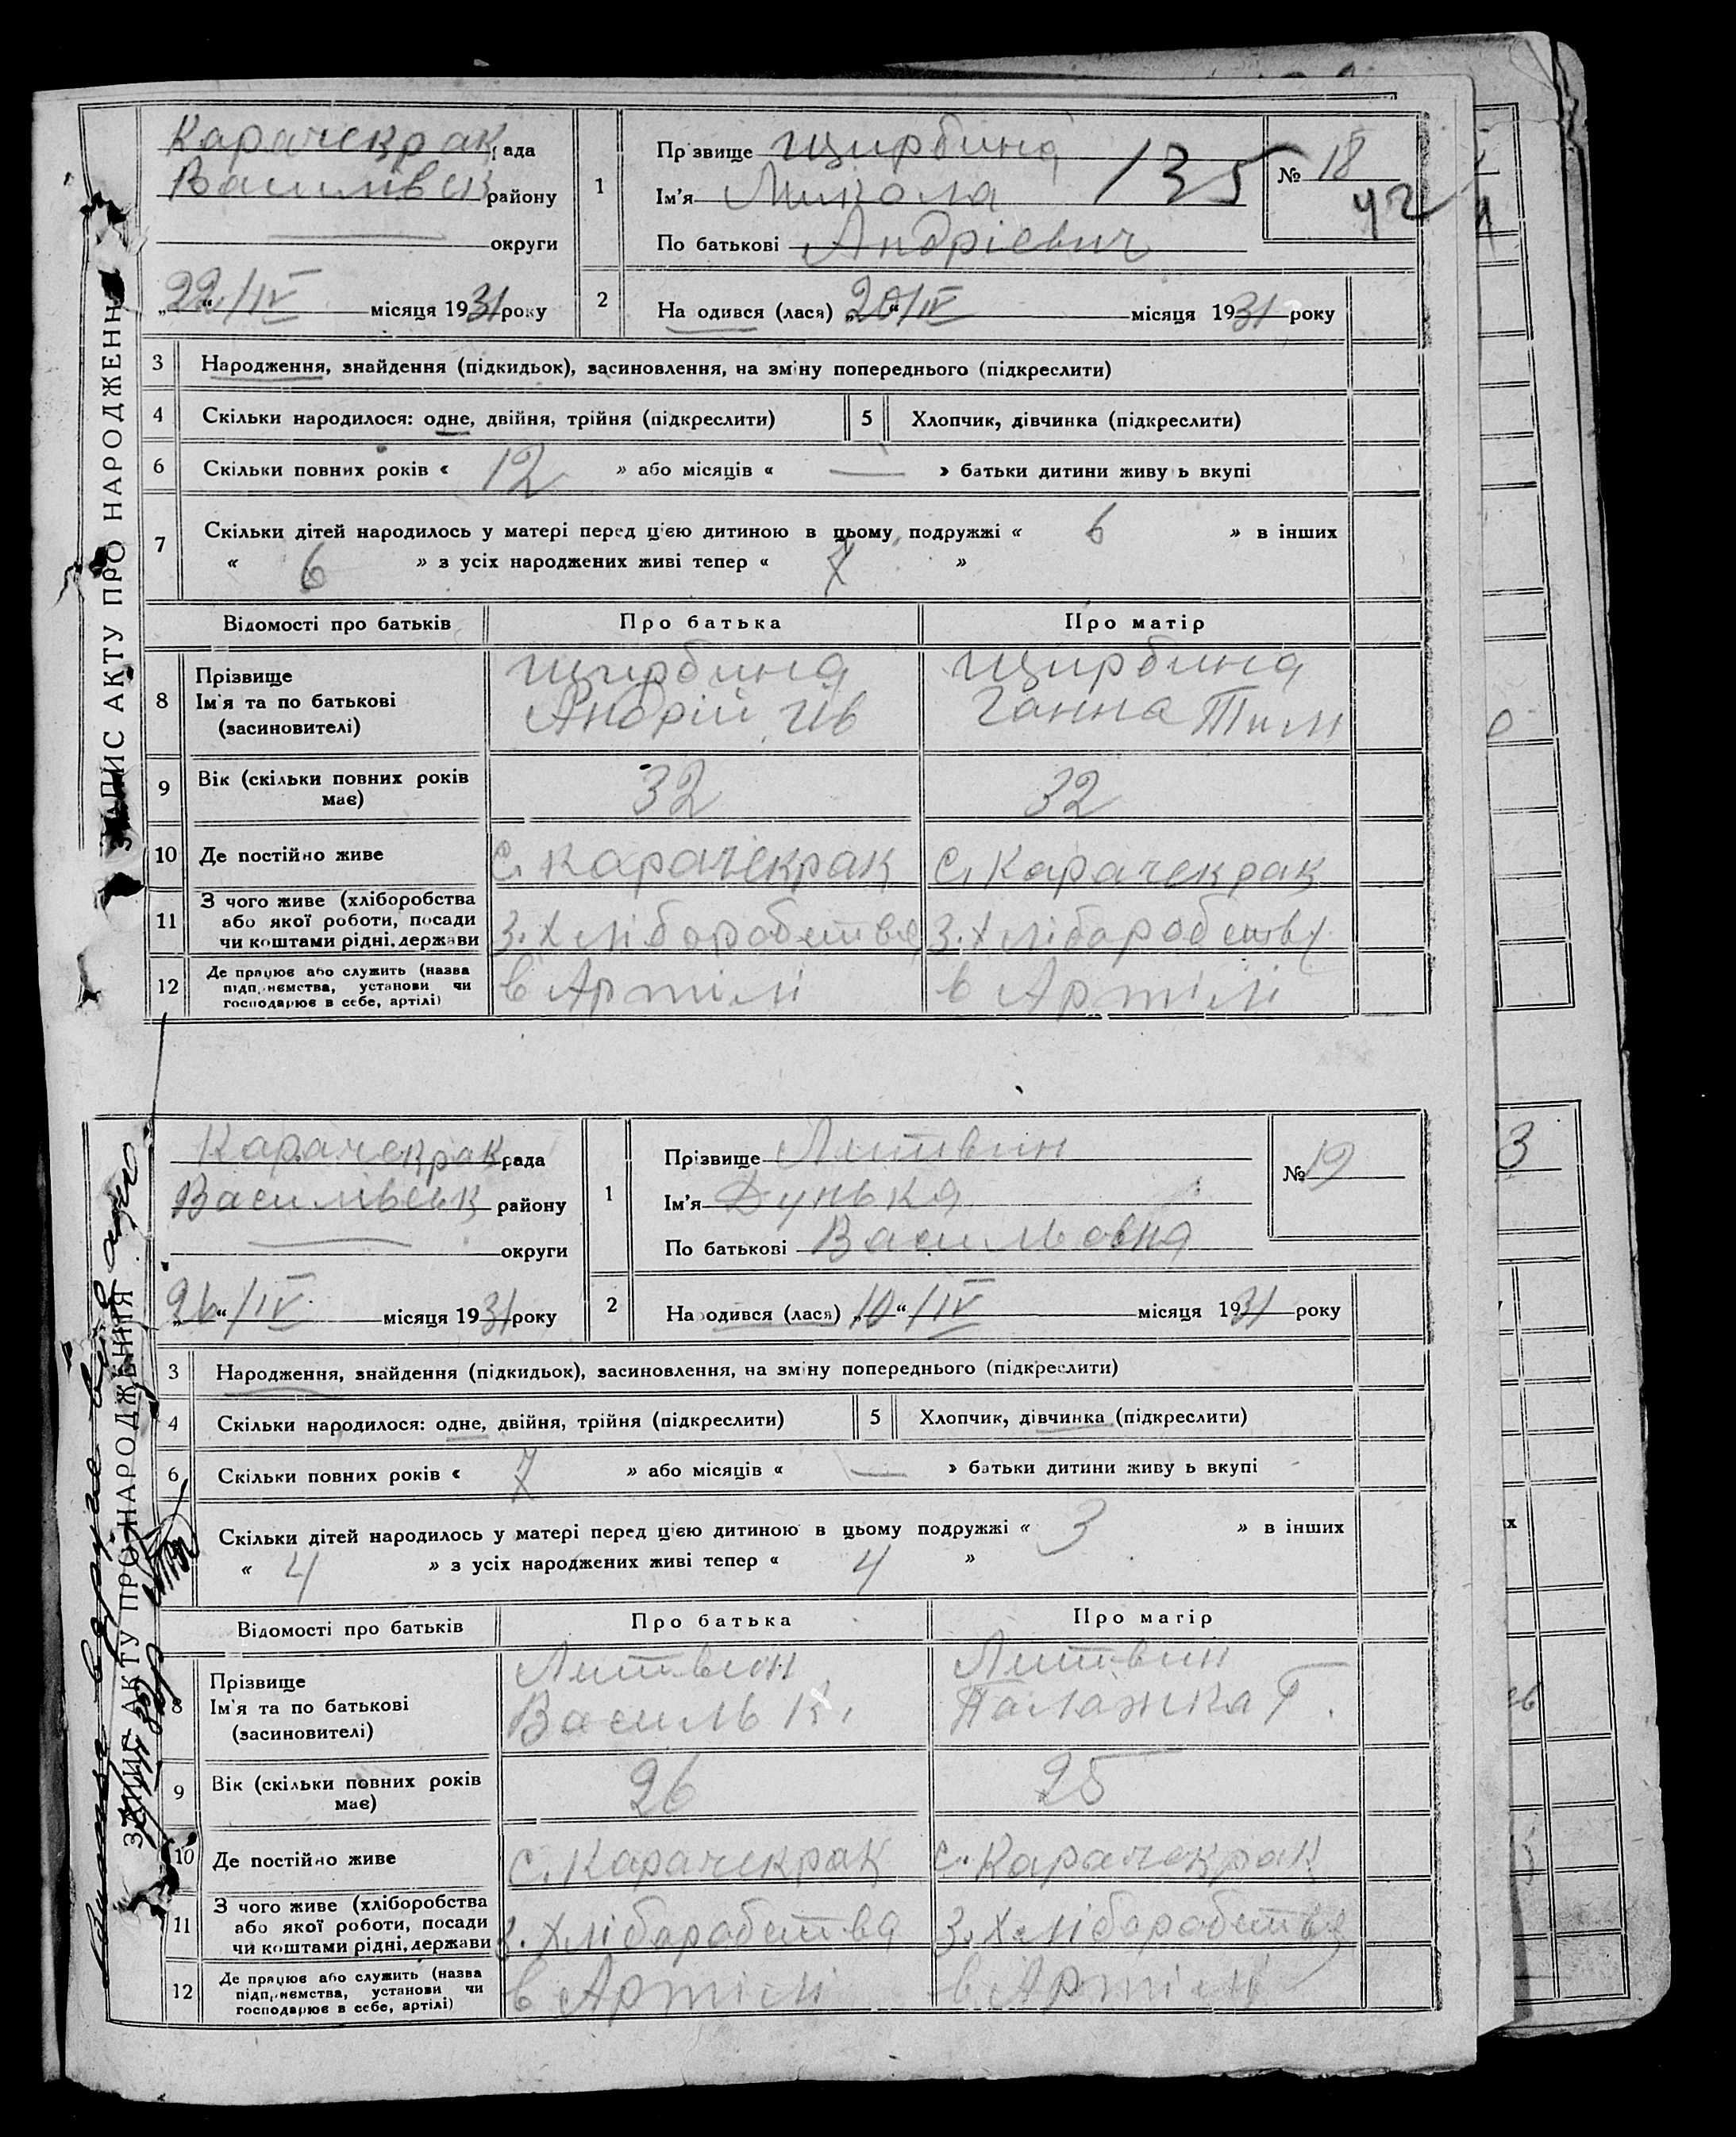 ЗАПИС АКТУ ПРО НАРОДЖЕННЯ
Карачекрак рада
Василівськ району
округи
„22“/IV місяця 1931 року
1
Прізвище Щирбина
Ім'я Микола
По батькові Андріевич
135
№ 18
42
2
Народився (лася) „20“/IV місяця 1931 року
3 Народження, знайдення (підкидьок), засиновлення, на зміну попереднього (підкреслити)
4 Скільки народилося: одне, двійня, трійня (підкреслити) 5 Хлопчик, дівчинка (підкреслити)
6 Скільки повних років « 12 » або місяців « — » батьки дитини живуть вкупі
7 Скільки дітей народилось у матері перед цією дитиною в цьому подружжі « 6 » в інших
« 6 » з усіх народжених живі тепер « 7 »
Відомості про батьків Про батька Про матір
8 Прізвище Щирбина Щирбина
Ім'я та по батькові Андрій Ив Ганна Тим
(засиновителі)
9 Вік (скільки повних років має) 32 32
10 Де постійно живе с. Карачекрак с. Карачекрак
11 З чого живе (хліборобства
або якої роботи, посади
чи коштами рідні, держави з. хліборобства з. хліборобства
12 Де працює або служить (назва
підприємства, установи чи
господарює в себе, артілі) в Артілі в Артілі
ЗАПИС АКТУ ПРО НАРОДЖЕННЯ
Карачекрак рада
Василівськ району
округи
„26“/IV місяця 1931 року
1
Прізвище Литвин
Ім'я Дунька
По батькові Васильовна
№ 19
2
Народився (лася) „10“/IV місяця 1931 року
3 Народження, знайдення (підкидьок), засиновлення, на зміну попереднього (підкреслити)
4 Скільки народилося: одне, двійня, трійня (підкреслити) 5 Хлопчик, дівчинка (підкреслити)
6 Скільки повних років « 7 » або місяців « — » батьки дитини живуть вкупі
Скільки дітей народилось у матері перед цією дитиною в цьому подружжі « 3 » в інших
« 4 » з усіх народжених живі тепер « 4 »
Відомості про батьків Про батька Про матір
8 Прізвище Литвин Литвин
Ім'я та по батькові Василь К. Палажка Г.
(засиновителі)
9 Вік (скільки повних років має) 26 25
10 Де постійно живе с. Карачекрак с. Карачекрак
11 З чого живе (хліборобства
або якої роботи, посади
чи коштами рідні, держави з. хліборобства з. хліборобства
12 Де працює або служить (назва
підприємства, установи чи
господарює в себе, артілі) в Артілі в Артілі